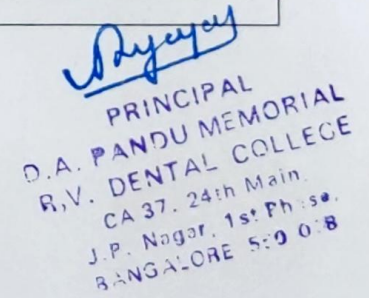 PRINCIPAL
D.A. PANDU MEMORIAL
R.V. DENTAL COLLEGE
CA 37, 24th Main,
J.P. Nagar, 1st Phase,
BANGALORE 560 078